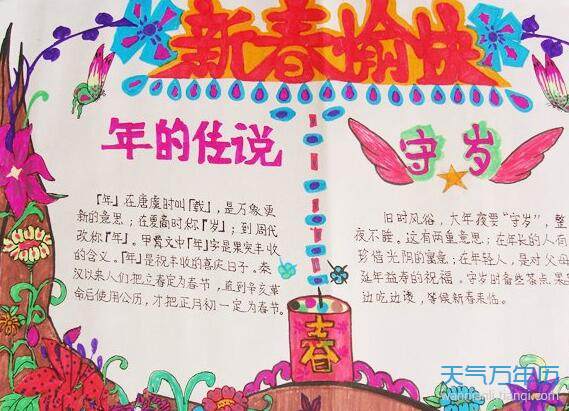 新春愉快
年的传说
「年」在唐虞时叫「载」，是万象更
新的意思；在夏商时称「岁」；到周代
改称「年」。甲骨文中「年」字是果实丰收
的含义。「年」是祝丰收的喜庆日子。秦
汉以来人们把立春定为春节，直到辛亥革
命后使用公历，才把正月初一定为春节。
守岁
旧时风俗，大年夜要“守岁”，整
夜不睡。这有两重意思；在年长的人有
珍惜光阴的意；在年轻人，是对父母
延年益寿的祝福。守岁时备些茶点
边吃边谈，等候新春来临。
春
天气万年历
wannianli.tianqi.com